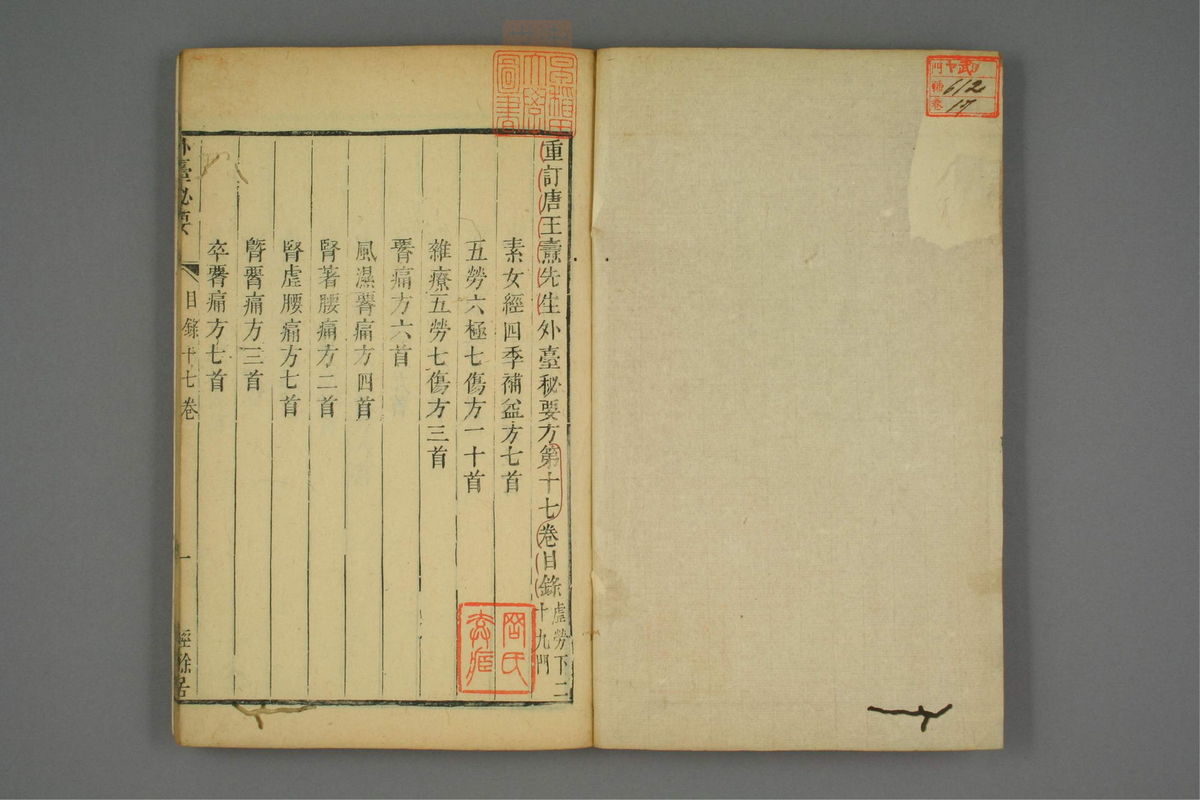 重訂唐王燾先生外臺秘要方第十七卷目錄 虛勞下二十九門
素女經四季補益方七首
五勞六極七傷方一十首
雜療五勞七傷方三首
腎痛方六首
風濕腎痛方四首
腎著腰痛方二首
腎虛腰痛方七首
䐴腎痛方三首
卒腎痛方七首
外臺秘要
目錄十七卷
一
經餘居
早稻田大學圖書
門
號 612
卷 17